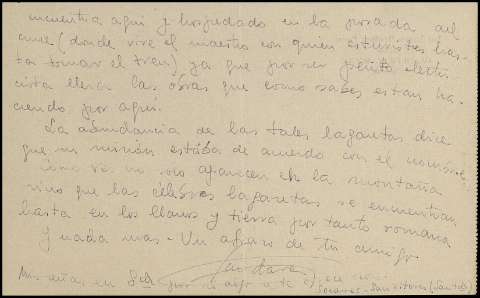 encuentra aquí y hospedado en la posada del
cine (donde vive el maestro con quien estuvisteis has-
ta tomar el tren) ya que por ser perito electri-
cista lleva las obras que como sabes están ha-
ciendo por aquí.
La abundancia de las tales lagaretas dice
que mi misión estaba de acuerdo con el nombre.
Como ves no solo aparecen en la montaña
sino que las célebres lagaretas se encuentran
hasta en los llanos y tierra por tanto romana
Y nada mas. Un abrazo de tu amigo
Mis señas en